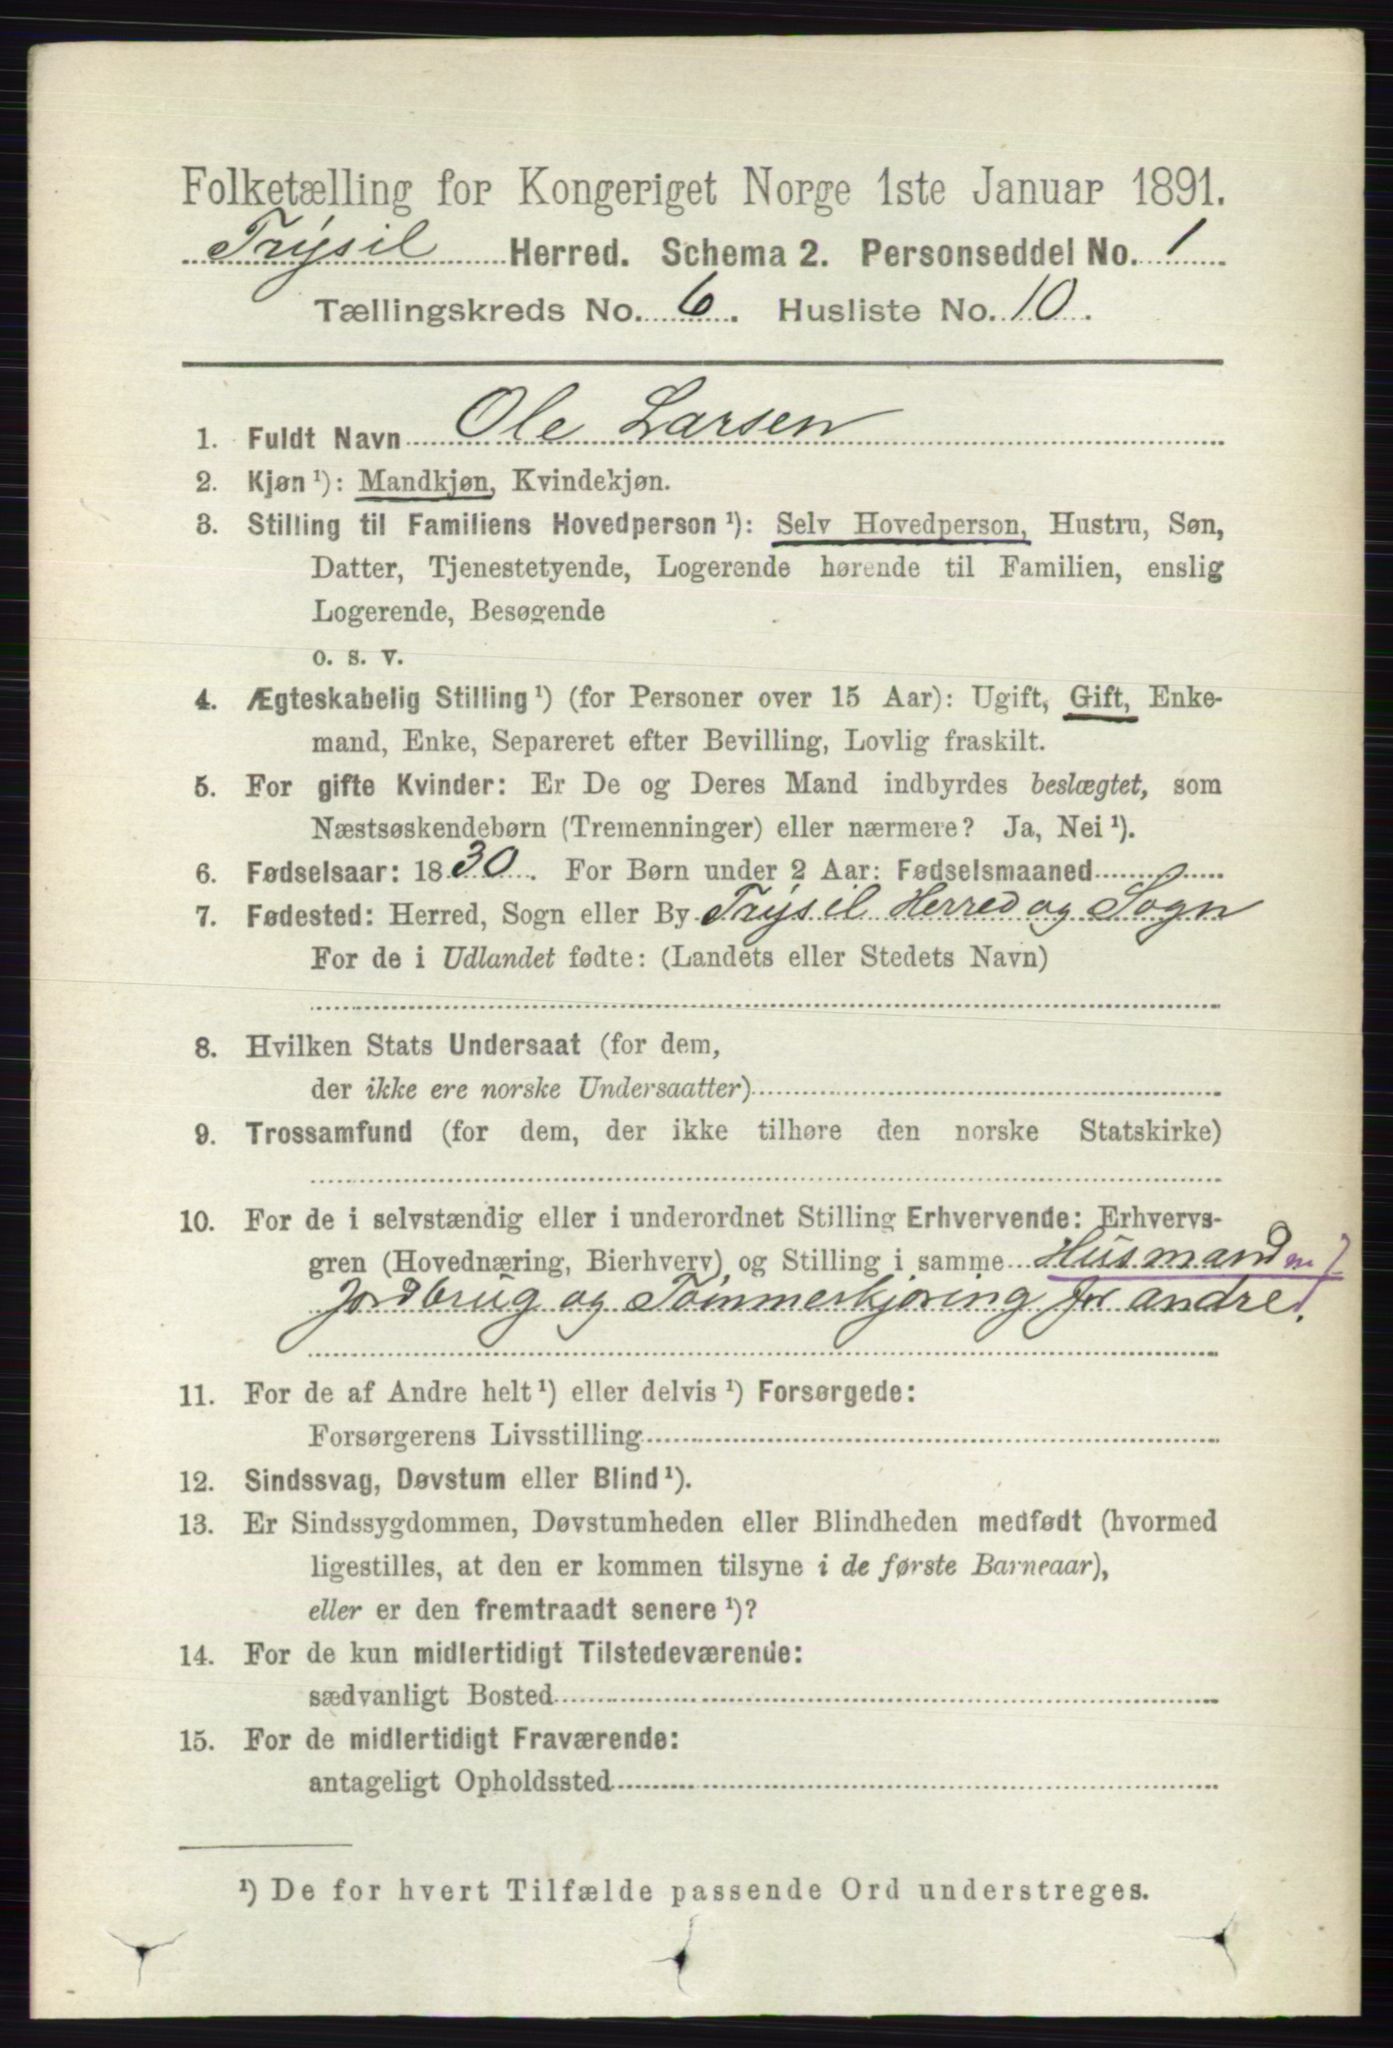 Folketælling for Kongeriget Norge 1ste Januar 1891.
Trysil Herred. Schema 2. Personseddel No. 1
Tællingskreds No. 6. Husliste No. 10.
1. Fuldt Navn Ole Larsen
2. Kjøn ¹): Mandkjøn, Kvindekjøn.
3. Stilling til Familiens Hovedperson ¹): Selv Hovedperson, Hustru, Søn,
Datter, Tjenestetyende, Logerende hørende til Familien, enslig
Logerende, Besøgende
o. s. v.
4. Ægteskabelig Stilling ¹) (for Personer over 15 Aar): Ugift, Gift, Enke-
mand, Enke, Separeret efter Bevilling, Lovlig fraskilt.
5. For gifte Kvinder: Er De og Deres Mand indbyrdes beslægtet, som
Næstsøskendebørn (Tremenninger) eller nærmere? Ja, Nei ¹).
6. Fødselsaar: 1830. For Børn under 2 Aar: Fødselsmaaned
7. Fødested: Herred, Sogn eller By Trysil Herred og Sogn
For de i Udlandet fødte: (Landets eller Stedets Navn)
8. Hvilken Stats Undersaat (for dem,
der ikke ere norske Undersaatter)
9. Trossamfund (for dem, der ikke tilhøre den norske Statskirke)
10. For de i selvstændig eller i underordnet Stilling Erhvervende: Erhvervs-
gren (Hovednæring, Bierhverv) og Stilling i samme Husmand m J
Jordbrug og Tømmerkjøring for andre.
11. For de af Andre helt ¹) eller delvis ¹) Forsørgede:
Forsørgerens Livsstilling
12. Sindssvag, Døvstum eller Blind ¹).
13. Er Sindssygdommen, Døvstumheden eller Blindheden medfødt (hvormed
ligestilles, at den er kommen tilsyne i de første Barneaar),
eller er den fremtraadt senere ¹)?
14. For de kun midlertidigt Tilstedeværende:
sædvanligt Bosted
15. For de midlertidigt Fraværende:
antageligt Opholdssted
¹) De for hvert Tilfælde passende Ord understreges.